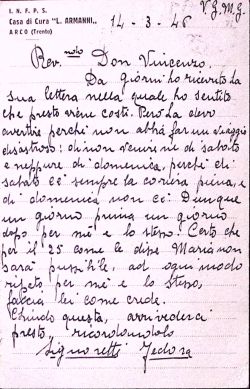 V.G.M.G.
I. N. F. P. S.
Casa di Cura "L. ARMANNI"
ARCO (Trento)
14-3-46
Rev.mo Don Vincenzo.
Da giorni ho ricevuto la
sua lettera nella quale ho sentito
che presto verrà costì. Però la devo
avvertire perchè non abbia far un viaggio
disastroso: di non venire ne di sabato
e neppure di domenica, perchè di
sabato c'è sempre la corriera piena,
di domenica non c'è. Dunque
un giorno prima un giorno
dopo per me è lo stesso. Certo che
per il 25 come le disse Maria non
sarà possibile, ad ogni modo
ripeto per me è lo stesso,
faccia lei come crede.
Chiudo questa, arrivederci
presto, ricordandolo
Signoretti Fedora